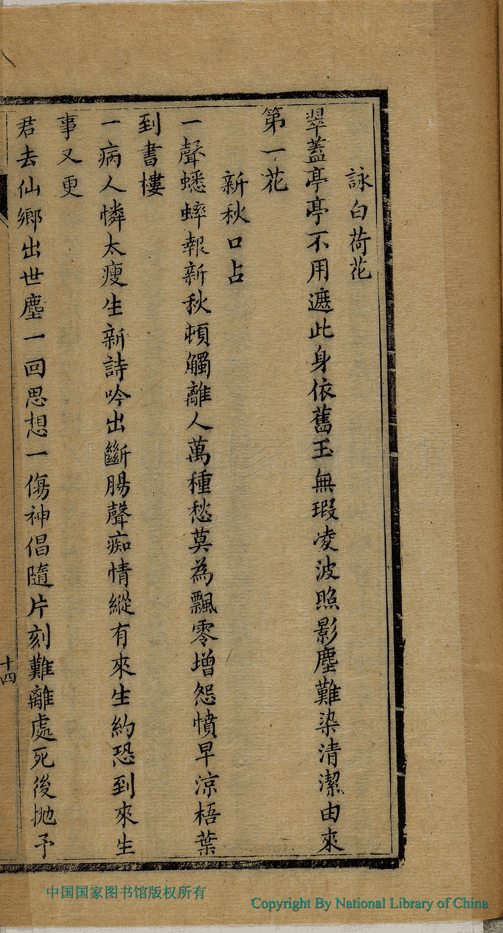 詠白荷花
翠蓋亭亭不用遮此身依舊玉無瑕凌波照影塵難染清潔由來
第一花
新秋口占
一聲蟋蟀報新秋頓觸離人萬種愁莫為飄零增怨憤早涼梧葉
到書樓
一病人憐太瘦生新詩吟出斷腸聲痴情縱有來生約恐到來生
事又更
君去仙鄉出世塵一回思想一傷神倡隨片刻難離處死後拋予
十四
中国国家图书馆版权所有
Copyright By National Library of China